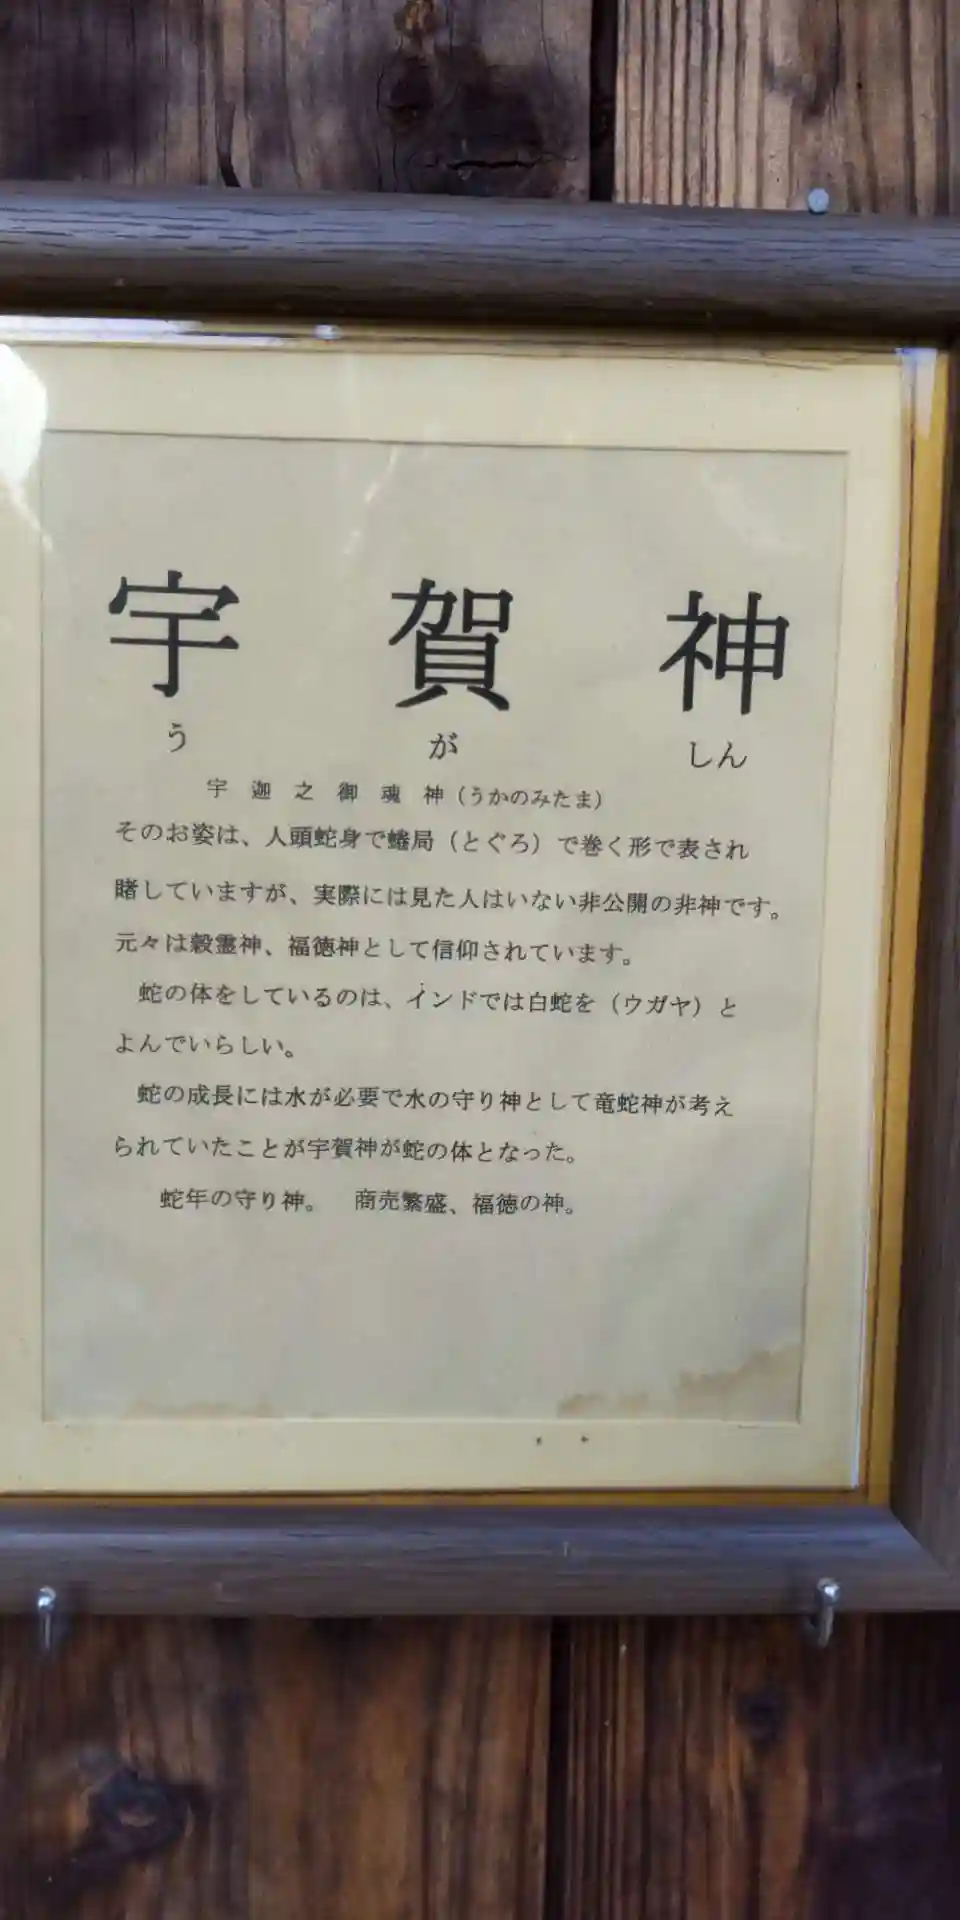 宇賀神
うがしん
宇迦之御魂神（うかのみたま）
そのお姿は、人頭蛇身で蜷局（とぐろ）で巻く形で表され
賭していますが、実際には見た人はいない非公開の非神です。
元々は穀霊神、福徳神として信仰されています。
蛇の体をしているのは、インドでは白蛇を（ウガヤ）と
よんでいらしい。
蛇の成長には水が必要で水の守り神として竜蛇神が考え
られていたことが宇賀神が蛇の体となった。
蛇年の守り神。　商売繁盛、福徳の神。